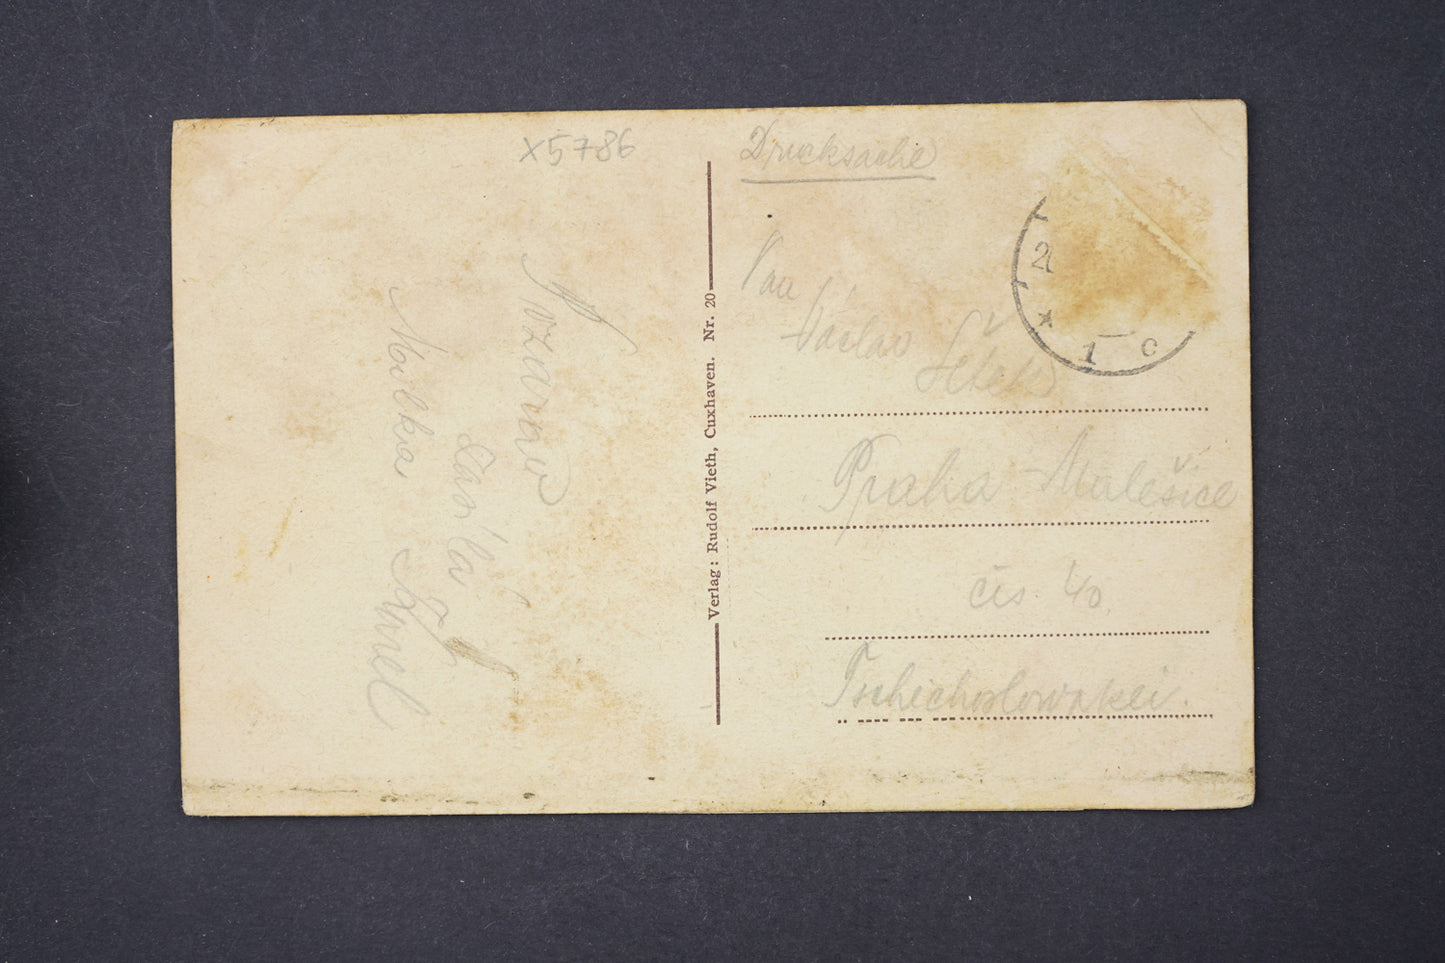 x5786
Drucksache
Pan
Václav
Praha - Malešice
čís. 40.
Tschechoslowakei.
Verlag: Rudolf Vieth, Cuxhaven. Nr. 20
2
* 1 c
Pozdrav
Milka